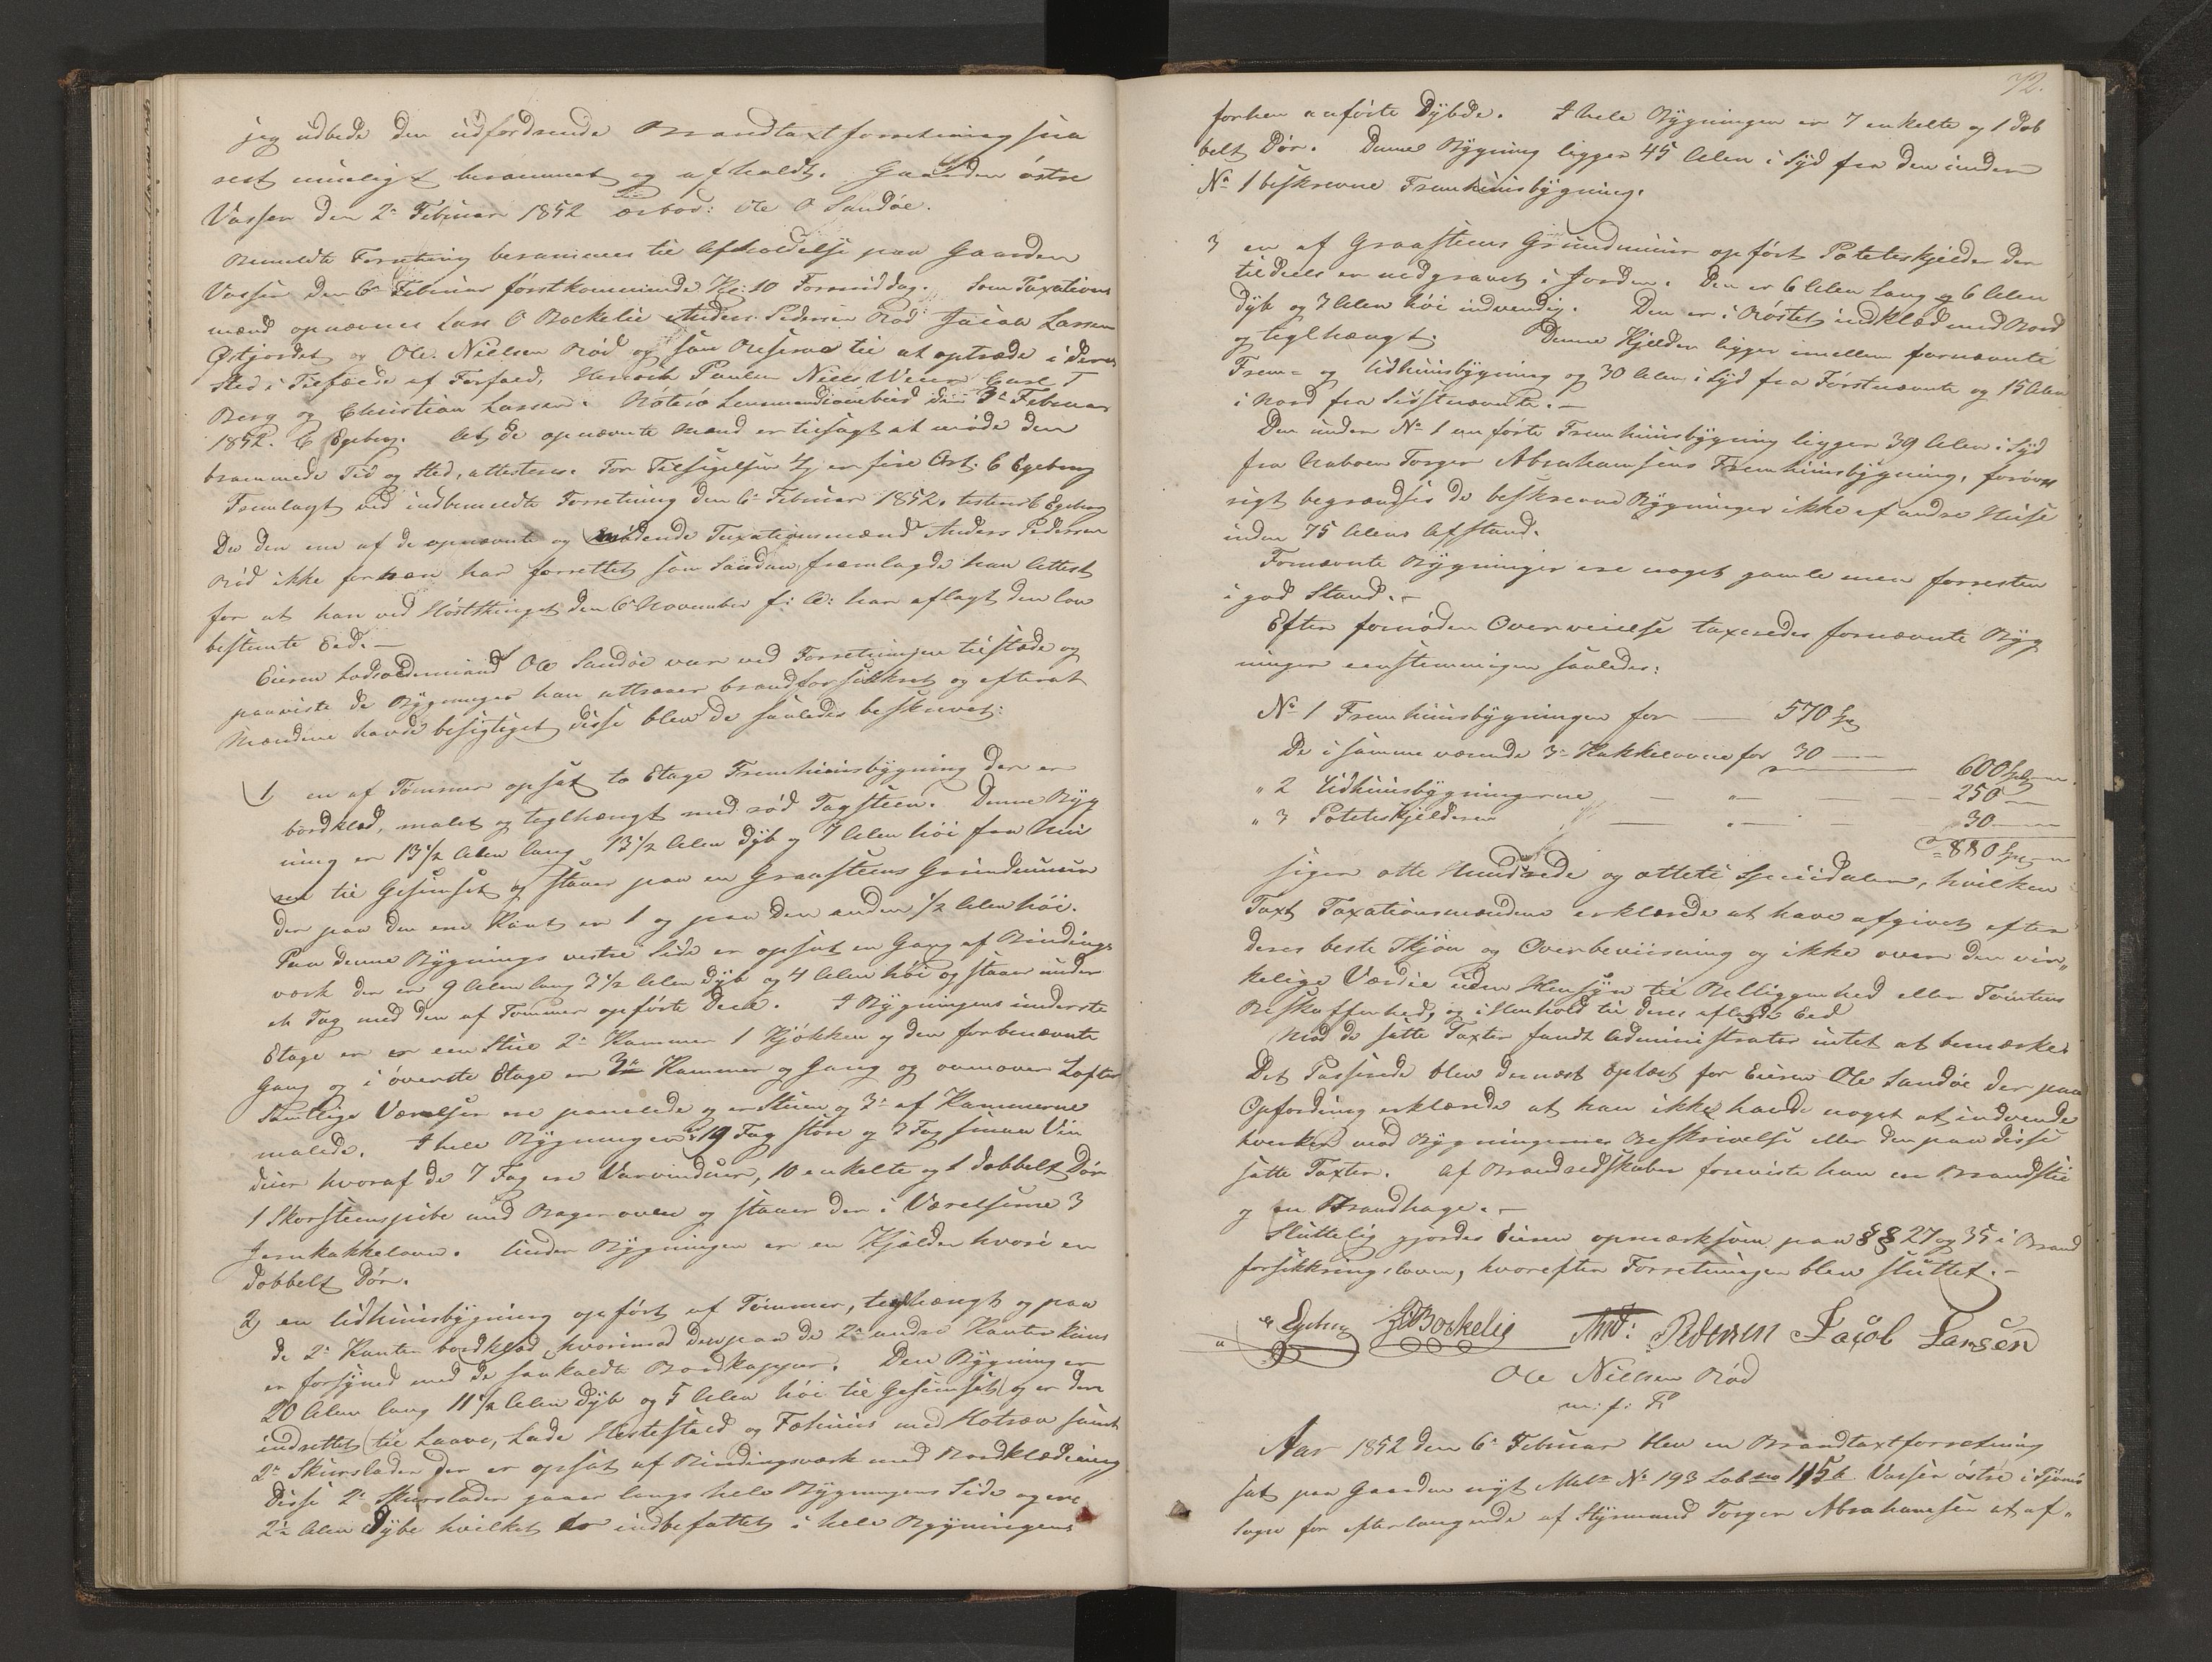 jeg udbede den udfordrende Brandtaxtforretning sna
rest mueligt berammet og afholdt. Gaarden østre
Vassen den 2n Februar 1852 ærbød: Ole O Sandøe.
Bemeldte Forretning berammes til Afholdelse paa Gaarden
Vassen den 6te Februar førstkommende Kl: 10 Formiddag. Som Taxations
mænd opnævnes Lars O Bockelie Anders Pedersen Rød Jacob Larsen
Østjordet og Ole Nielsen Rød og som Reserve til at optræde i deres
sted i Tilfælde af Forfald, Henrich Paulsen Niels Carl T
Berg og Christian Larsen. Nøterø Lensmandsombud den 3n Februar
1852. C Egeberg. At de opnævnte Mænd er tilsagt at møde den
brammede Tid og sted, attesteres. For Tilsigelsen 4/ er fire Ort: C Egeberg
Fremlagt ved indbemeldte Forretning den 6n Februar 1852. testerer C Egeberg
Da den ene af de opnævnte og mødende Taxationsmænd Anders Pedersen
Rød ikke forhen har forrettet som Saadan, fremlagde han Attest
for at han ved Høstthinget den 6 November f: A: har aflagt den lov
bestemte Eed. —
Eieren Lodsoldermand Ole Sandøe var ved Forretningen tilstæde og
paaviste de Bygninger han attraaer brandforsikkret og efterat
Mændene havde besigtiget disse blev de saaledes beskrevet:
1 en af Tømmer opsat to Etage Fremhuusbygning der er
bordklæd, malet og teglhængt med rød Tagsteen. Denne Byg
ning er 13 1/2 Alen lang 13 1/2 Alen dyb og 7 Alen høi fra Mu
ren til Gesimset og staaer paa en Graasteens Grundmuur
der paa den ene Kant er 1 og paa den anden 1/2 Alen høi.
Paa denne Bygnings vestre Side er opsat en Gang af Bindings
værk der er 9 Alen lang 3 1/2 Alen dyb og 4 Alen høi og staaer under
et Tag med den af Tømmer opførte Deel. I Bygningens underste
Etage er er een Stue 2n Kammer 1 Kjøkken og den forbenævnte
Gang og i øverste Etage er 3n Kammer og Gang og ovenover Lofter
Samtlige Værelser ere panelede og er Stuen og 3n af Kammerne
malede. I hele Bygningen er 19 Fag store og 3 Fag smaa Vin
duer hvoraf de 7 Fag ere Varvinduer, 10 enkelte og 1 dobbelt Dør
1 Skorsteenspibe med Bagerovn og staaer der i Værelserne 3
Jernkakkelovn. Under Bygningen er en Kjælder hvori er
dobbelt Dør.
2) en Udhuusbygning opført af Tømmer, teglhængt og paa
de 2n Kanter bordklæd, hvorimod den paa de 2n andre Kanter kuns
er forsynet med de saakaldte Bordkapper. Den Bygning er
20 Alen lang 11 1/2 Alen dyb og 5 Alen høi til Gesimset og er den
indrettet til Laave, Lade Hestestald og Fæhuus med Kotræv samt
2n Skurslader der er opsat af Bindingsværk med Bordklædning
disse 2n Skurslader gaaer langs hele Bygningens Side og ere
2n Alen dybe hvilket er indbefattet i hele Bygningens
72.
forhen anførte Dybde. I hele Bygningen er 7 enkelte og 1 dob
belt Dør. Denne Bygning ligger 45 Alen i Syd fra den under
No 1 beskrevne Fremhuusbygning.
3 en af Graasteens Grundmuur opført Poteteskjelder der
tildeels er nedgravet i Jorden. Den er 6 Alen lang og 6 Alen
dyb og 3 Alen høi indvendig. Den er i Røstet indklæd med Bord
og teglhængt. Denne Kjelder ligger imellem fornævnte
Frem- og Udhuusbygning og 30 Alen i Syd fra Førstnævnte og 15 Alen
i Nord fra Sidstnævnte. —
Den under No 1 anførte Fremhuusbygning ligger 39 Alen i Syd
fra Naboen Torger Abrahamsens Fremhuusbygning, forøv
rigt begrændses de beskrevne Bygninger ikke af andre Huse
inden 75 Alens Afstand.
Fornævnte Bygninger ere noget gamle men forresten
i god Stand. —
Efter fornøden Overveielse taxeredes fornævnte Byg
ninger eenstemmigen saaledes:
No 1 Fremhuusbygningen for — 570 Spd
De i samme værende 3n Kakkelovne for 30 —
600 Spd —
" 2 Udhuusbygningerne — " — 250 —
" 3 Poteteskjelderen — " — 30 —
= 880 Spd —
siger otte Hundrede og otteti Speciedaler, hvilken
Taxt Taxationsmændene erklærede at have afgivet efter
deres beste Skjøn og Overbeviisning og ikke over den vir„
kelige Værdie uden Hensyn til Belliggenhed eller Tomtens
Beskaffenhed, og i Henhold til deres aflagde Eed
Mod de satte Taxter fandt Administrator intet at bemærke.
Det Passerede blev dernæst oplæst for Eieren Ole Sandøe der paa
Opfordring erklærede at han ikke havde noget at indvende
hverken mod Bygningernes Beskrivelse eller den paa disse
satte Taxter. Af Brandredskaber foreviste han en Brandstie
og en Brandhage. —
Sluttelig gjordes Eieren opmærksom paa §§ 27 og 35 i Brand
forsikkringsloven, hvorefter Forretningen blev sluttet. —
C Egeberg L O Bockelie And: Pedersen Jacob Larsen
Ole Nielsen Rød
m: f: P
Aar 1852 den 6n Februar blev en Brandtaxtforretning
sat paa Gaarden nyt Matr No 193 Løb no 115b Vassen østre i Tjømø
Sogn for efterlangende af Styrmand Torger Abrahamsen at af„